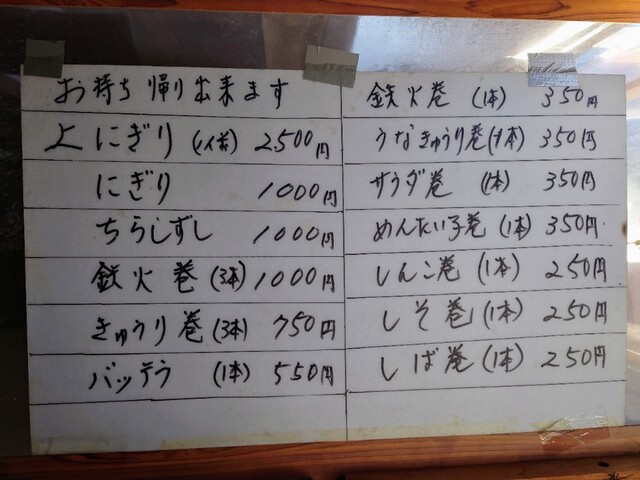 お持ち帰り出来ます
上にぎり 2,500円
にぎり 1000円
ちらしずし 1000円
鉄火巻 (3本) 1000円
きゅうり巻 (3本) 750円
バッテラ (1本) 550円
鉄火巻 (1本) 350円
うなきゅうり巻 (1本) 350円
サラダ巻 (1本) 350円
めんたい子巻 (1本) 350円
しんこ巻 (1本) 250円
しそ巻 (1本) 250円
しば巻 (1本) 250円